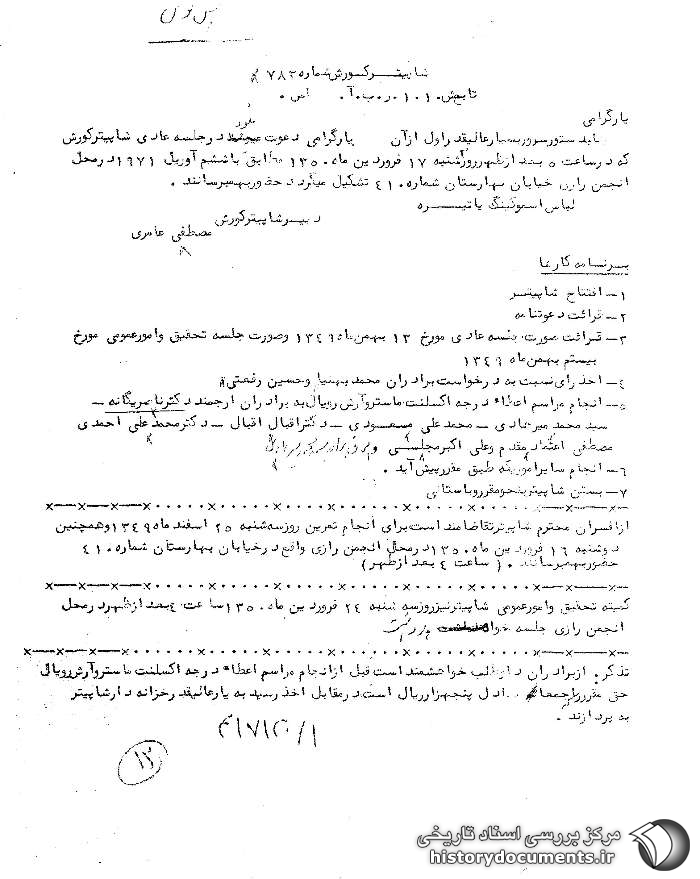 شاپیتر کورش شماره ۷۸۲۵
یارگرامی
یارگرامی دعوت میشود در جلسه عادی شاپیترکورش
که در ساعت ۵ بعد ازظهرروز شنبه ۱۷ فروردین ماه ۱۳۵۰ مطابق با ششم آوریل ۱۹۷۱ در محل
انجمن رازی خیابان بهارستان شماره ۴۱ تشکیل میگردد حضور بهم رسانند .
لباس اسموکینگ یا تیره
دبیر شاپیتر کورش
مصطفی عامری
برنامه کارها
۱- افتتاح شاپیتر
۲- قرائت دعوتنامه
۳- قرائت صورت جلسه عادی مورخ ۱۳ بهمن ماه ۱۳۴۹ وصورت جلسه تحقیق وامورعمومی مورخ
بیستم بهمن ماه ۱۳۴۹
۴- اخذ رای نسبت به درخواست برادران محمد بهنیا وحسین رفعتی
۵- انجام مراسم اعطاء درجه اکسلنت ماستر وآرش رویال به برادران ارجمند دکتر ناصریگانه -
سید محمد میرهادی - محمد علی مسعودی - دکتراقبال اقبال - دکترمحمدعلی احمدی
مصطفی اعتماد مقدم وعلی اکبر مجلسی
۶- انجام سایر اموریکه طبق مقرر پیش آید .
۷- بستن شاپیتر بنحو مقرر وباستانی
ازافسران محترم شاپیتر تقاضامند است برای انجام تمرین روز سه شنبه ۲۵ اسفند ماه ۱۳۴۹ وهمچنین
دوشنبه ۱۶ فروردین ماه ۱۳۵۰ در محل انجمن رازی واقع در خیابان بهارستان شماره ۴۱
حضور بهم رسانند . ( ساعت ۴ بعد ازظهر )
کمیته تحقیق وامورعمومی شاپیتر نیز روز سه شنبه ۲۴ فروردین ماه ۱۳۵۰ ساعت ۴ بعد ازظهر در محل
انجمن رازی جلسه خواهد داشت
تذکر . ازبرادران داوطلب خواهشمند است قبل ازانجام مراسم اعطاء درجه اکسلنت ماستر وآرش رویال
حق مقرر را جمعاً معادل پنجهزار ریال است در مقابل اخذ رسید به یارعالیقدر خزانه دار شاپیتر
به پردازند .
۱۲
مرکز بررسی اسناد تاریخی
historydocuments.ir